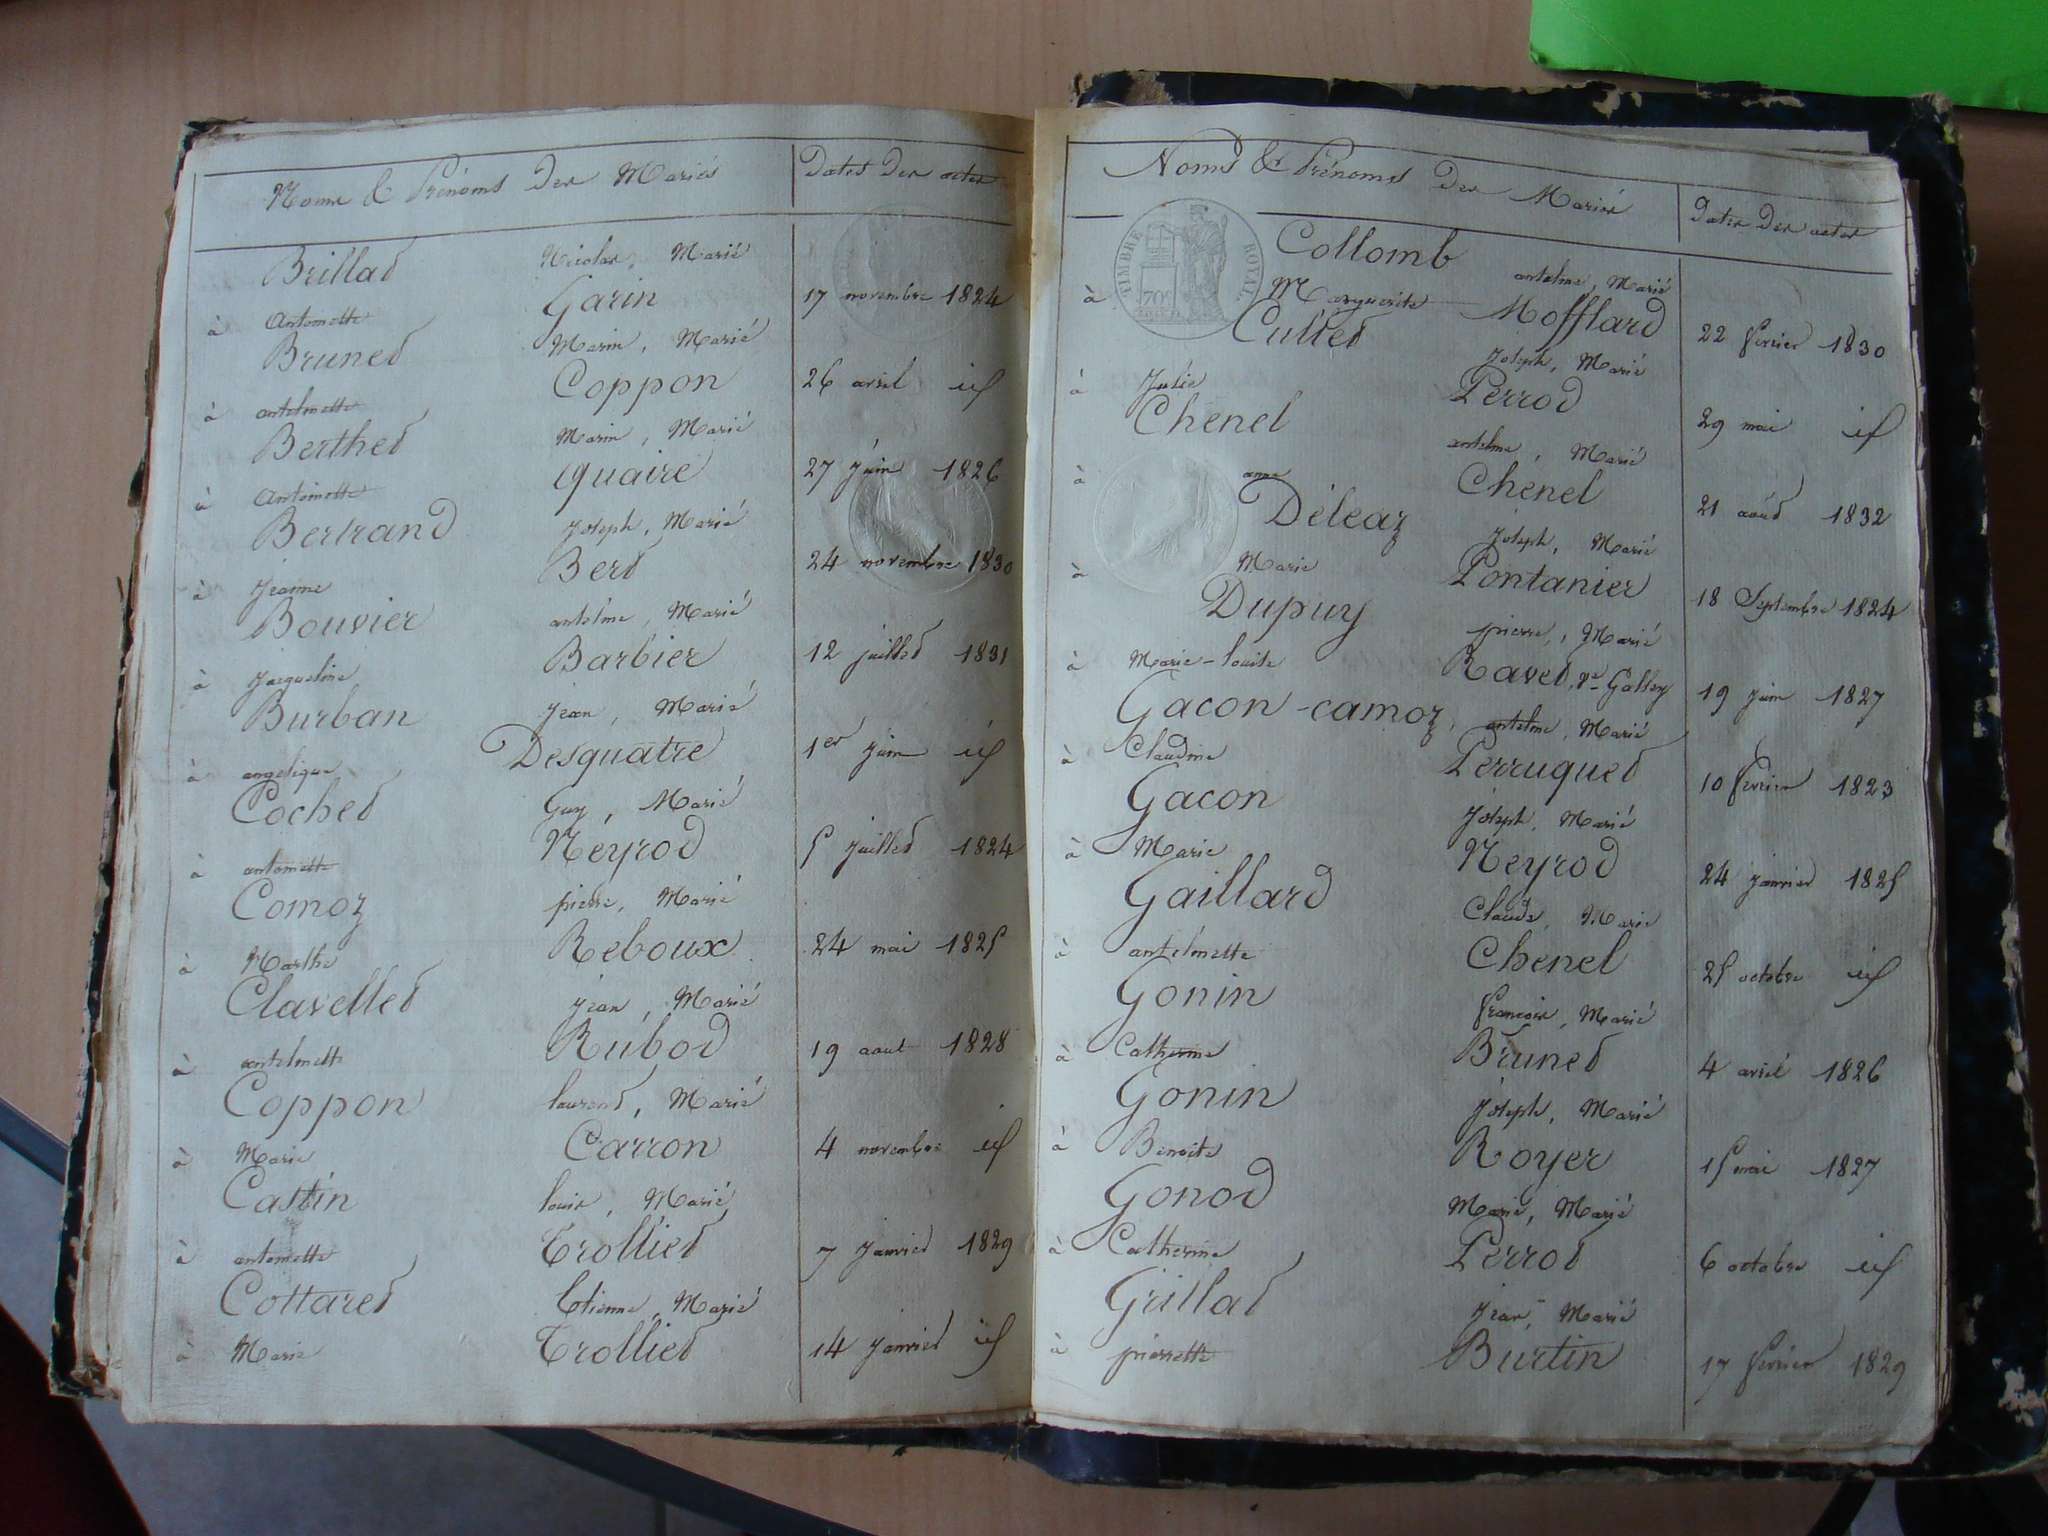 Noms & Prénoms Des Mariés Dates Des actes
Brillat Nicolas, Marié
à Antoinette Garin 17 novembre 1824
Brunet Marin, Marié
à antelmette Coppon 26 avril id
Berthet Marin, Marié
à Antoinette Quaire 27 juin 1826
Bertrand Joseph, Marié
à Jeanne Bert 24 novembre 1830
Bouvier antelme, Marié
à Jacqueline Barbier 12 juillet 1831
Burban Jean, Marié
à angelique Desquatre 1er juin id
Cochet Guy, Marié
à antoinette Néyrod 5 juillet 1824
Comoz pierre, Marié
à Marthe Reboux 24 mai 1825
Clavellet Jean, Marié
à antelmette Rubod 19 aout 1828
Coppon laurent, Marié
à Marie Carron 4 novembre id
Castin louis, Marié
à antoinette Trolliet 7 Janvier 1829
Cottaret Etienne, Marié
à Marie Trolliet 14 Janvier id
Noms & Prénoms Des Mariés Dates Des actes
TIMBRE ROYAL
70c
Collomb antelme, Marié
à Marguerite Mofflard 22 fevrier 1830
Cullet Joseph, Marié
à Julie Perrod 29 mai id
Chenel antelme, Marié
à anne Chenel 21 août 1832
Déleaz Joseph, Marié
à Marie Pontanier 18 Septembre 1824
Dupuy pierre, Marié
à Marie-louise Ravet, ve Gallay 19 juin 1827
Gacon-camoz, antelme, Marié
à Claudine Perruquet 10 fevrier 1823
Gacon Joseph, Marié
à Marie Neyrod 24 janvier 1825
Gaillard Claude, Marié
à antelmette Chenel 25 octobre id
Gonin francois, Marié
à Catherine Brunet 4 avril 1826
Gonin Joseph, Marié
à Benoite Royer 15 mai 1827
Gonod Marié, Marié
à Catherine Perrod 6 octobre id
Grillat Jean, Marié
à pierrette Burtin 17 fevrier 1829